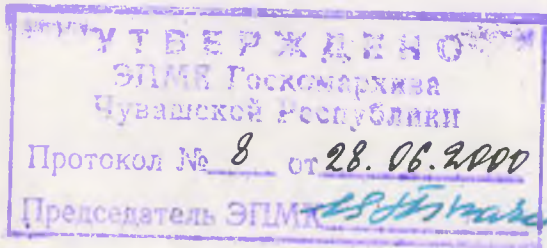 УТВЕРЖДЕНО
ЭПМК Госкомархива
Чувашской Республики
Протокол № 8 от 28.06.2000
Председатель ЭПМК